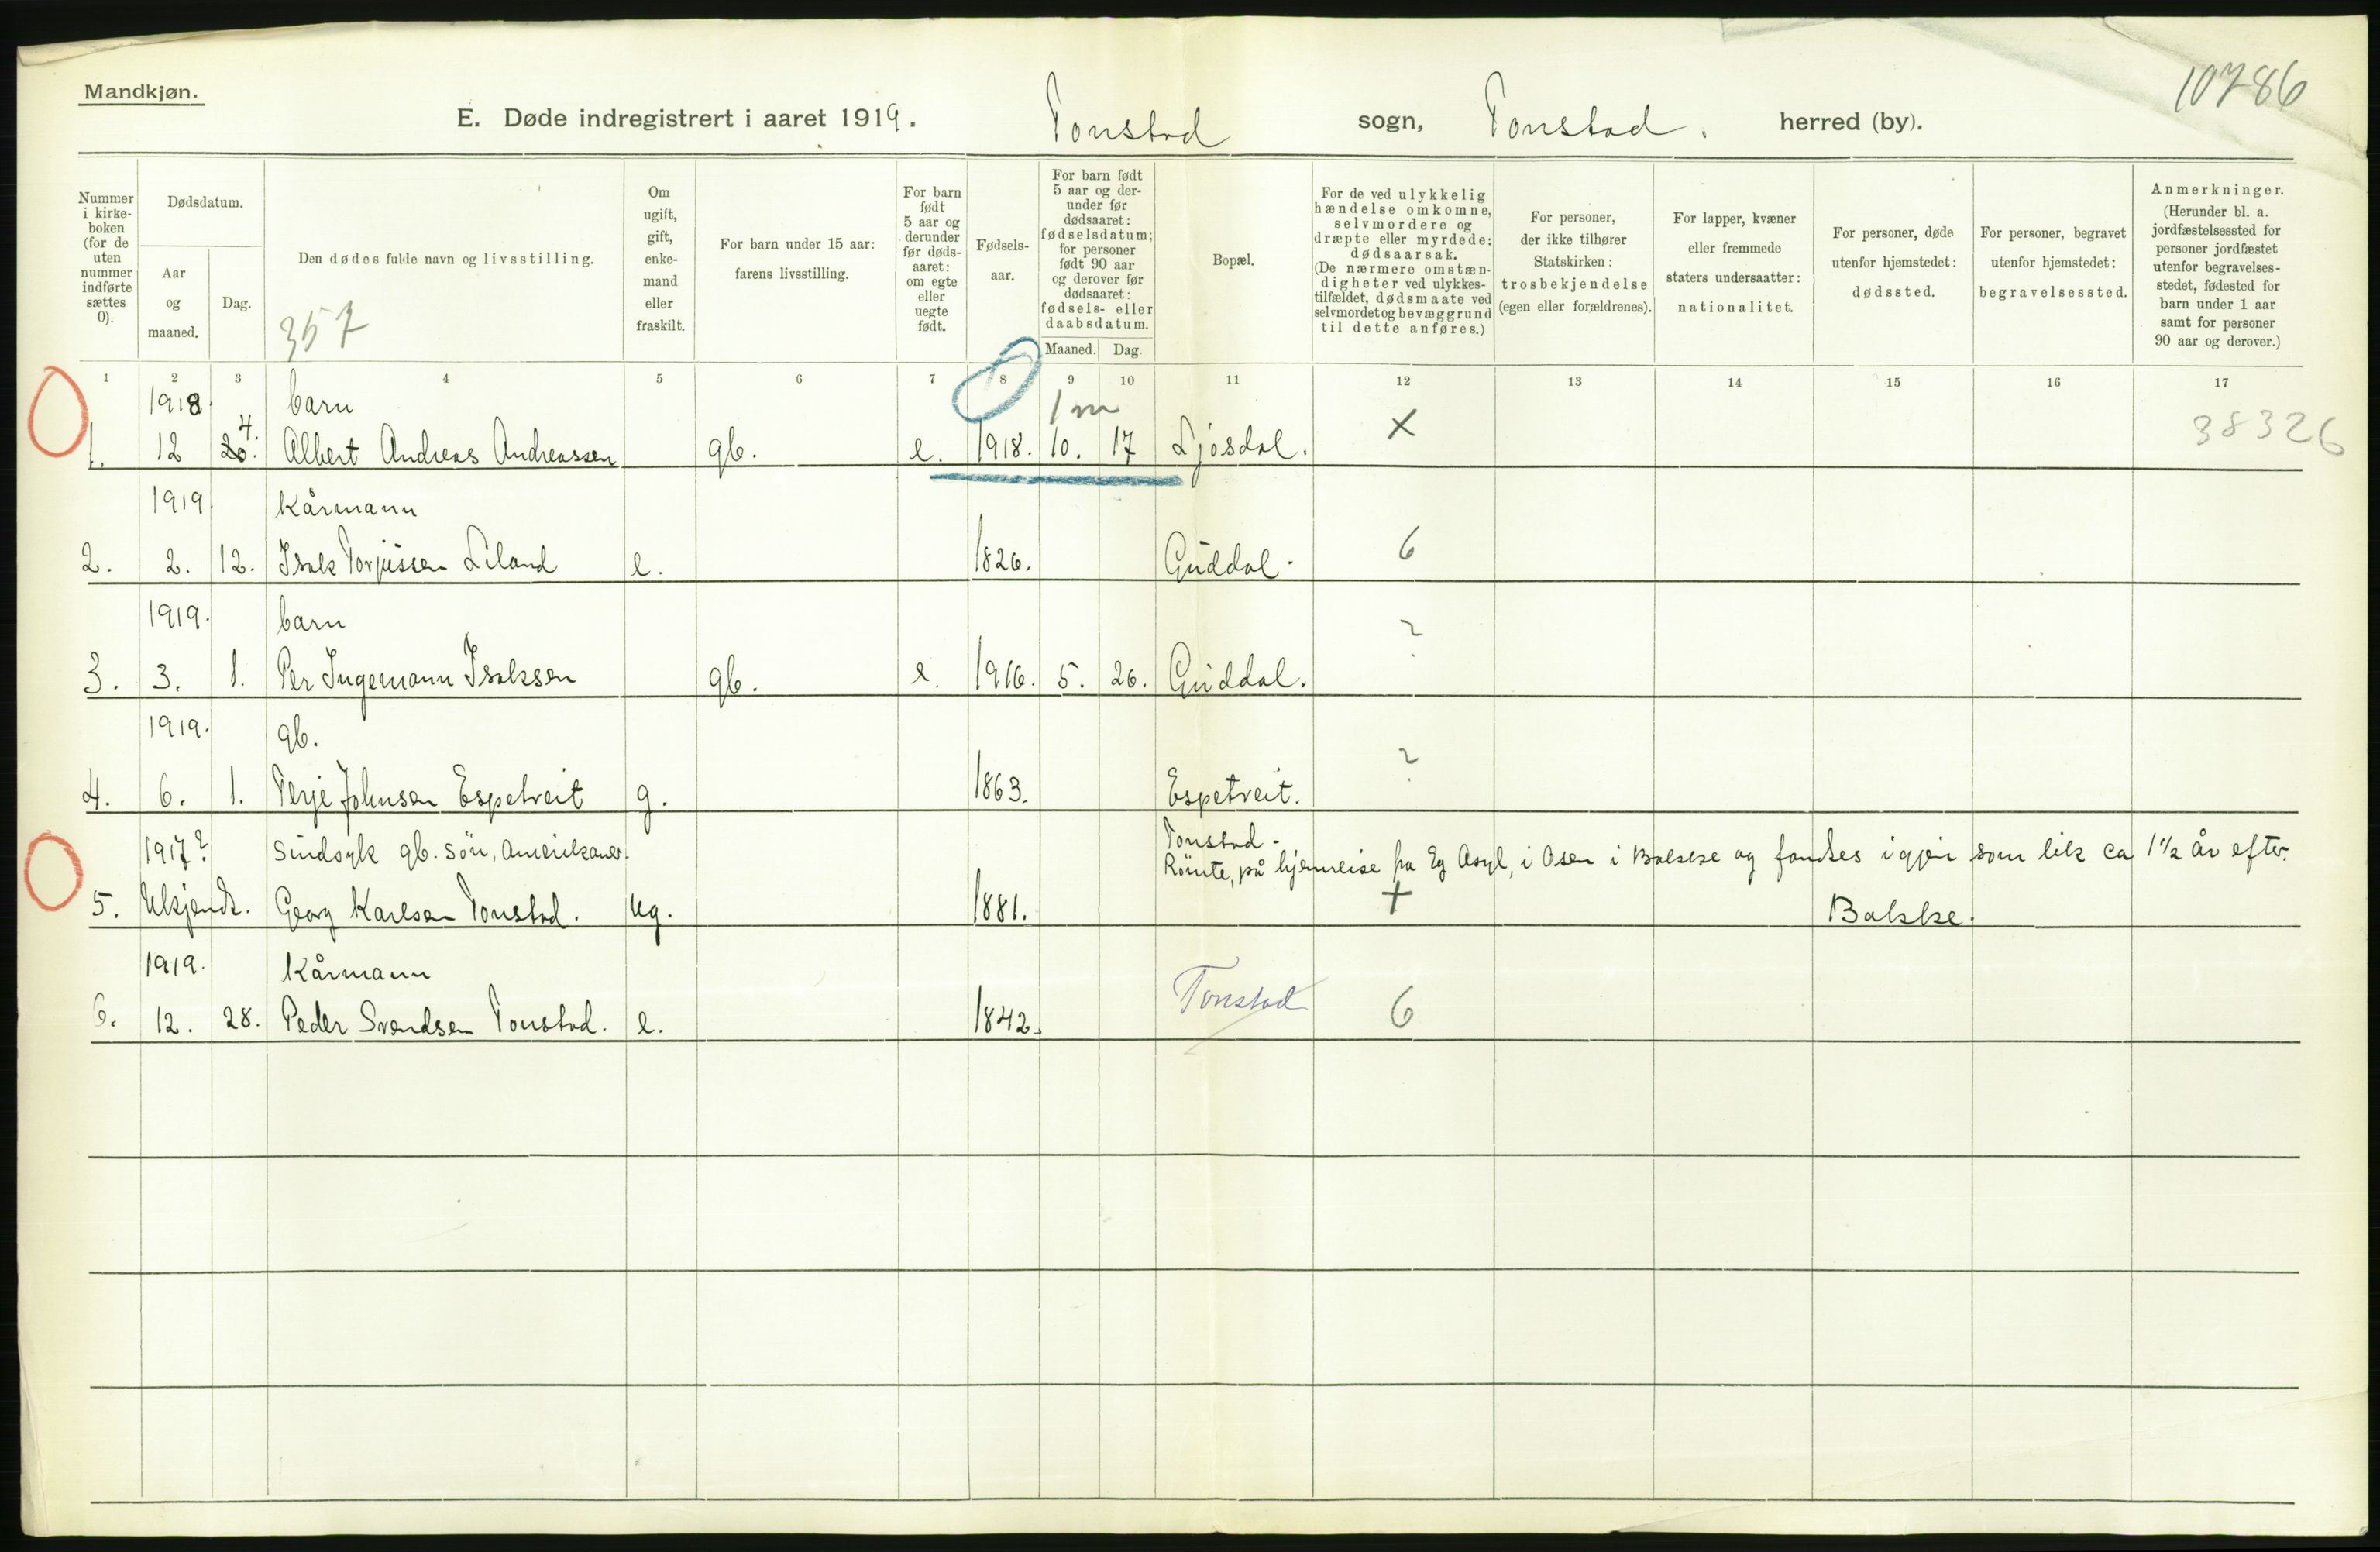 10786
Mandkjøn.
E. Døde indregistrert i aaret 1919. Tonstad sogn, Tonstad. herred (by).
Nummer i kirke-boken (for de uten nummer indførte sættes 0).
Dødsdatum.
Aar og maaned.
Dag.
Den dødes fulde navn og livsstilling.
357
Om ugift, gift, enke-mand eller fraskilt.
For barn under 15 aar: farens livsstilling.
For barn født 5 aar og derunder før døds-aaret: om egte eller uegte født.
Fødsels-aar.
For barn født 5 aar og der-under før dødsaaret: fødselsdatum; for personer født 90 aar og derover før dødsaaret: fødsels- eller daabsdatum.
Maaned. Dag.
Bopæl.
For de ved ulykkelig hændelse omkomne, selvmordere og dræpte eller myrdede: dødsaarsak. (De nærmere omstæn-digheter ved ulykkes-tilfældet, dødsmaate ved selvmordet og bevæggrund til dette anføres.)
For personer, der ikke tilhører Statskirken: trosbekjendelse (egen eller forældrenes).
For lapper, kvæner eller fremmede staters undersaatter: nationalitet.
For personer, døde utenfor hjemstedet: dødssted.
For personer, begravet utenfor hjemstedet: begravelsessted.
Anmerkninger. (Herunder bl. a. jordfæstelsessted for personer jordfæstet utenfor begravelses-stedet, fødested for barn under 1 aar samt for personer 90 aar og derover.)
1 2 3 4 5 6 7 8 9 10 11 12 13 14 15 16 17
1918. barn 1 m
1. 12 20. 4. Albert Andreas Andreassen gb. e. 1918. 10. 17 Ljosdal. X 38326
1919. Kårmann
2. 2. 12. Isak Torjussen Liland e. 1826. Guddal. 6
1919. barn
3. 3. 1. Per Ingemann Isaksen gb. e. 1916. 5. 26. Guddal. ?
1919. gb.
4. 6. 1. Terje Johnsen Espetveit g. 1863. Espetveit. ?
1917? Sindsyk gb. sön, Amerikaner. Tonstad.
Römte, på hjemreise fra Eg Asyl, i Osen i Bakke og fandtes igjen som lik ca 1½ år efter.
5. Ukjendt. Georg Karlsen Tonstad. ug. 1881. + Bakke.
1919. Kårmann
6. 12. 28. Peder Svendsen Tonstad. e. 1842. Tonstad 6